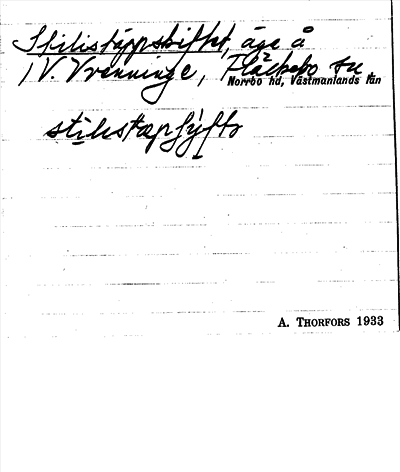 Stilistäppskiftet, äga å
V. Vrenninge, Fläckebo sn,
Norrbo hd, Västmanlands län
stilistæpsjyftə
A. THORFORS 1933